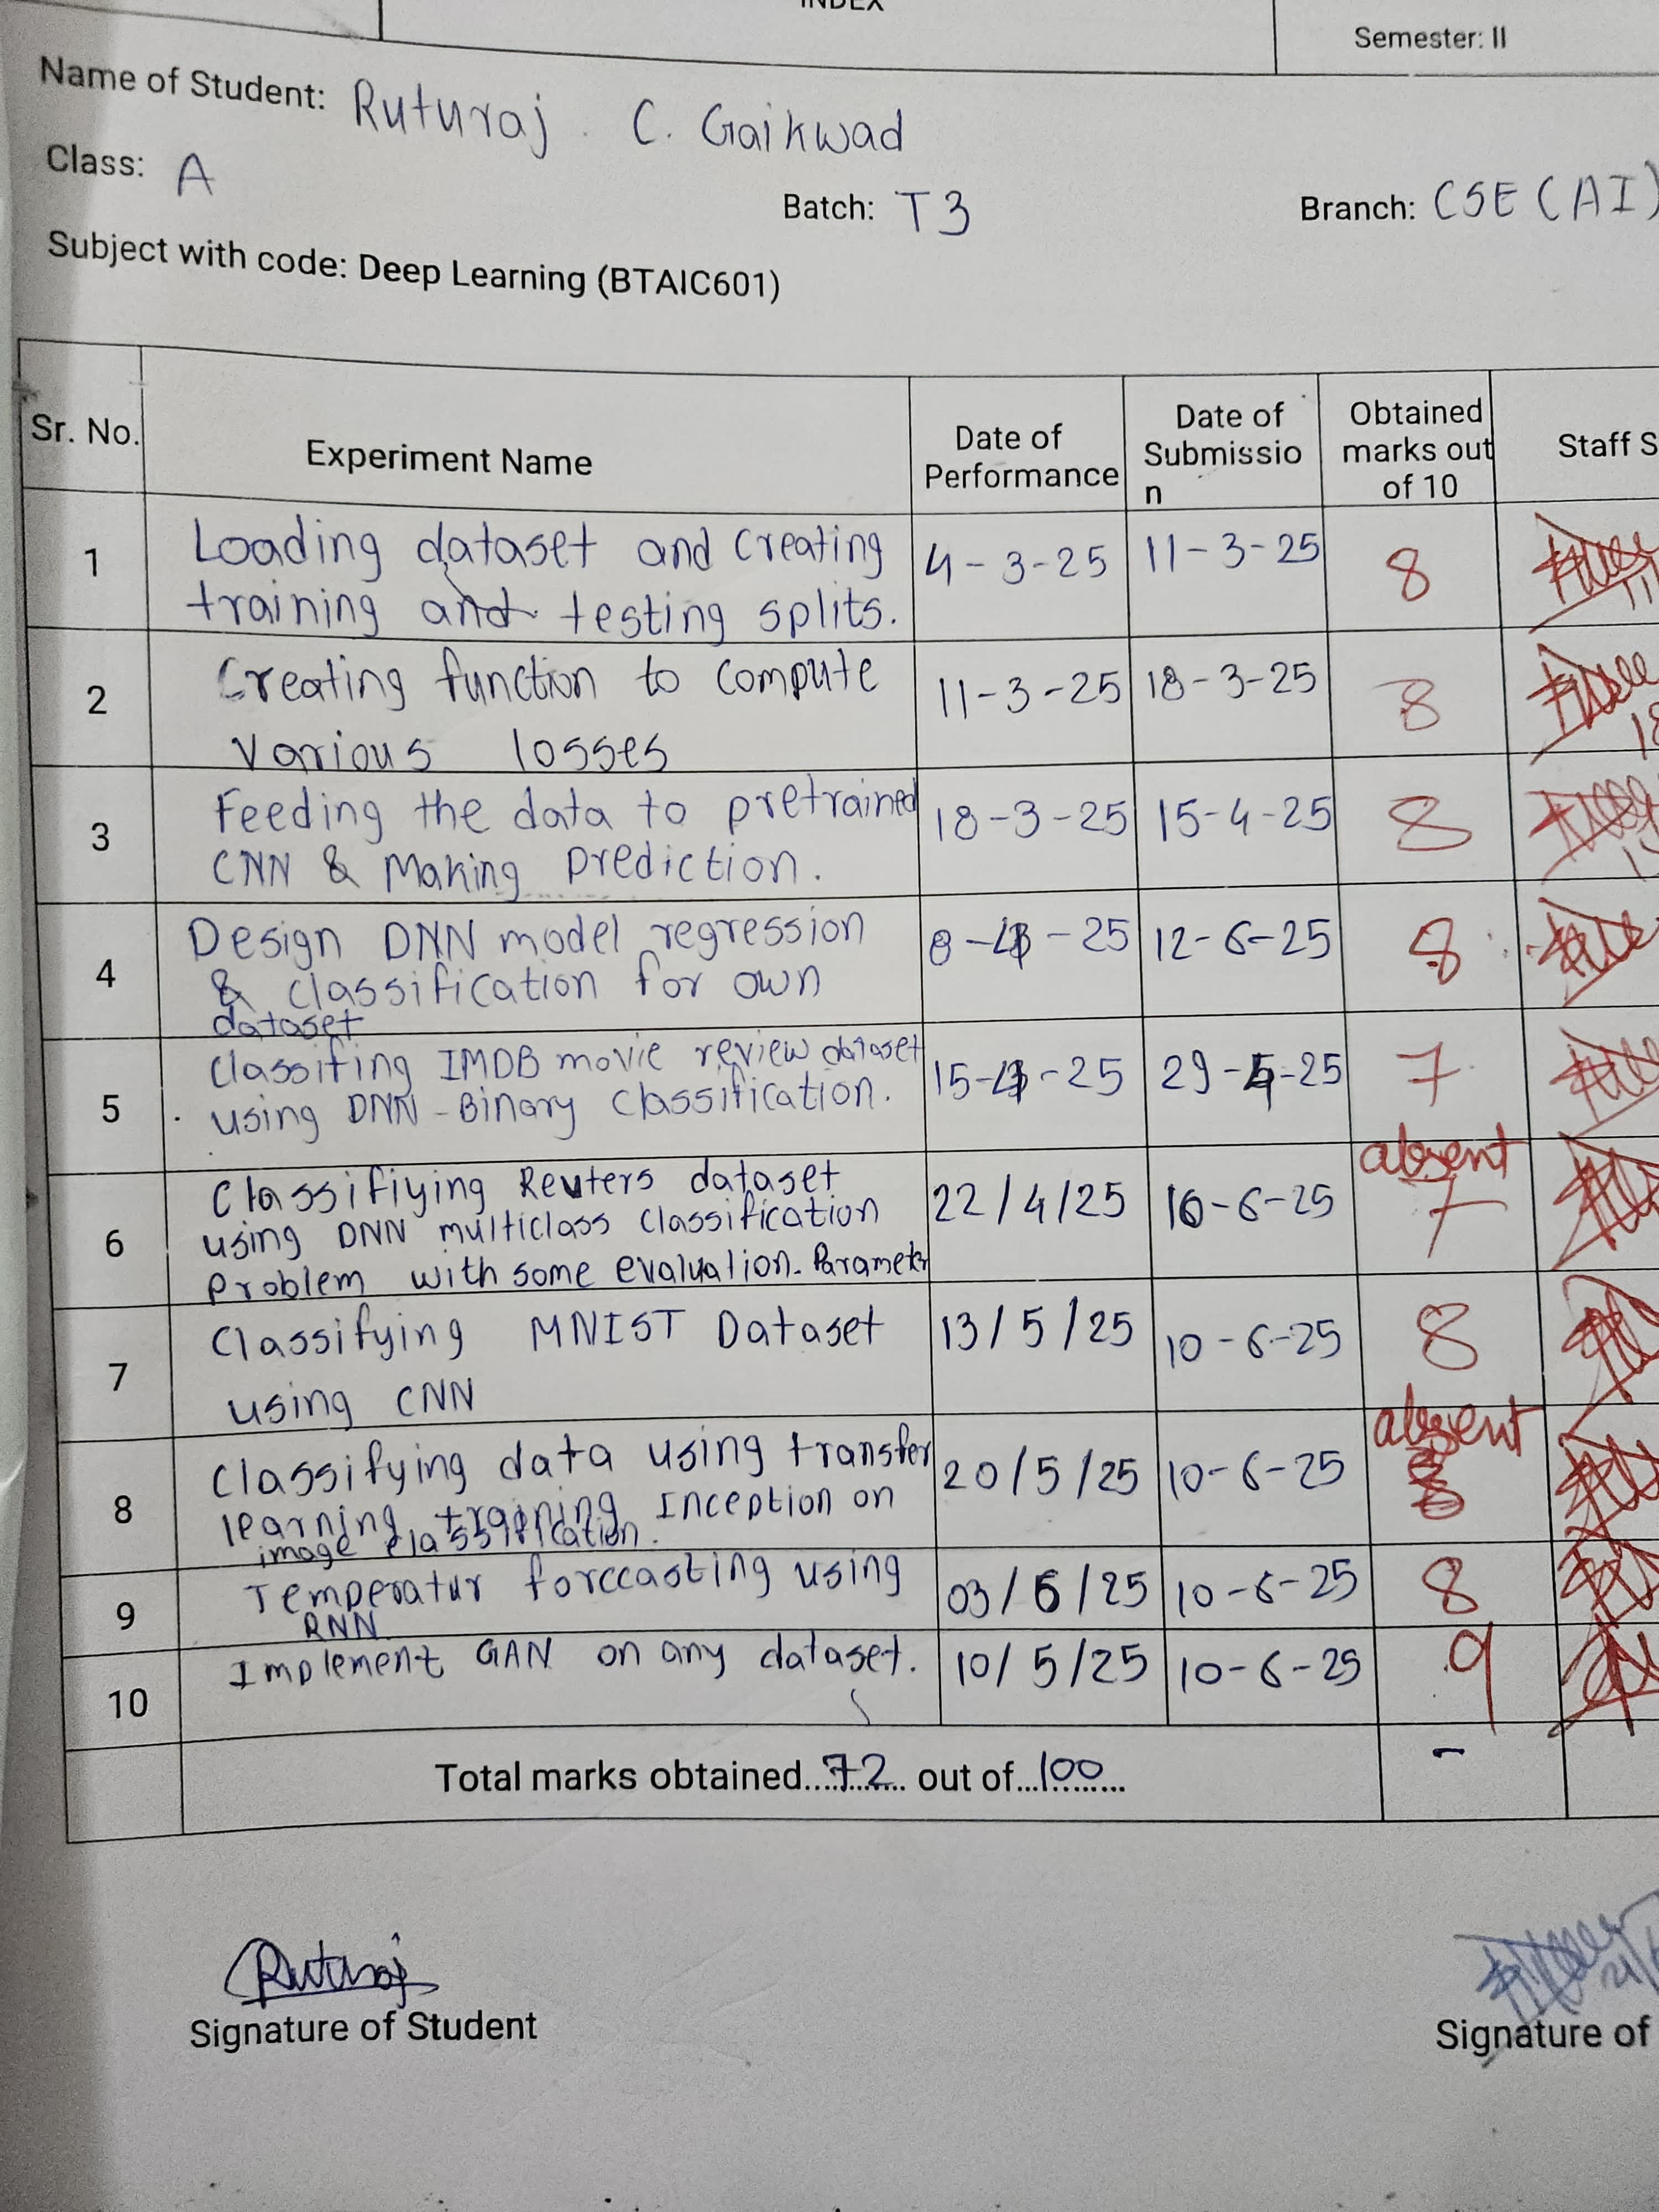 INDEX
Semester: II
Name of Student: Ruturaj . C. Gaikwad
Class: A
Batch: T3
Branch: CSE (AI)
Subject with code: Deep Learning (BTAIC601)
Sr. No.
Experiment Name
Date of
Performance
Date of
Submissio
n
Obtained
marks out
of 10
Staff S
1
Loading dataset and creating
training and testing splits.
4-3-25
11-3-25
8
2
Creating function to compute
various losses
11-3-25
18-3-25
8
3
Feeding the data to pretrained
CNN & Making prediction.
18-3-25
15-4-25
8
4
Design DNN model regression
& classification for own
dataset
8-4-25
12-6-25
8
5
classifing IMDB movie review dataset
using DNN - Binary classification.
15-4-25
29-5-25
7
6
Classifiying Reuters dataset
using DNN multiclass classification
problem with some evaluation.
22/4/25
16-6-25
absent
7
7
Classifying MNIST Dataset
using CNN
13/5/25
10-6-25
8
8
Classifying data using transfer
learning training Inception on
image classification.
20/5/25
10-6-25
absent
9
forecasting using
RNN
03/6/25
10-6-25
8
10
Implement GAN on any dataset.
10/5/25
10-6-25
9
Total marks obtained....72.... out of...100.....
Ruturaj
Signature of Student
Signature of